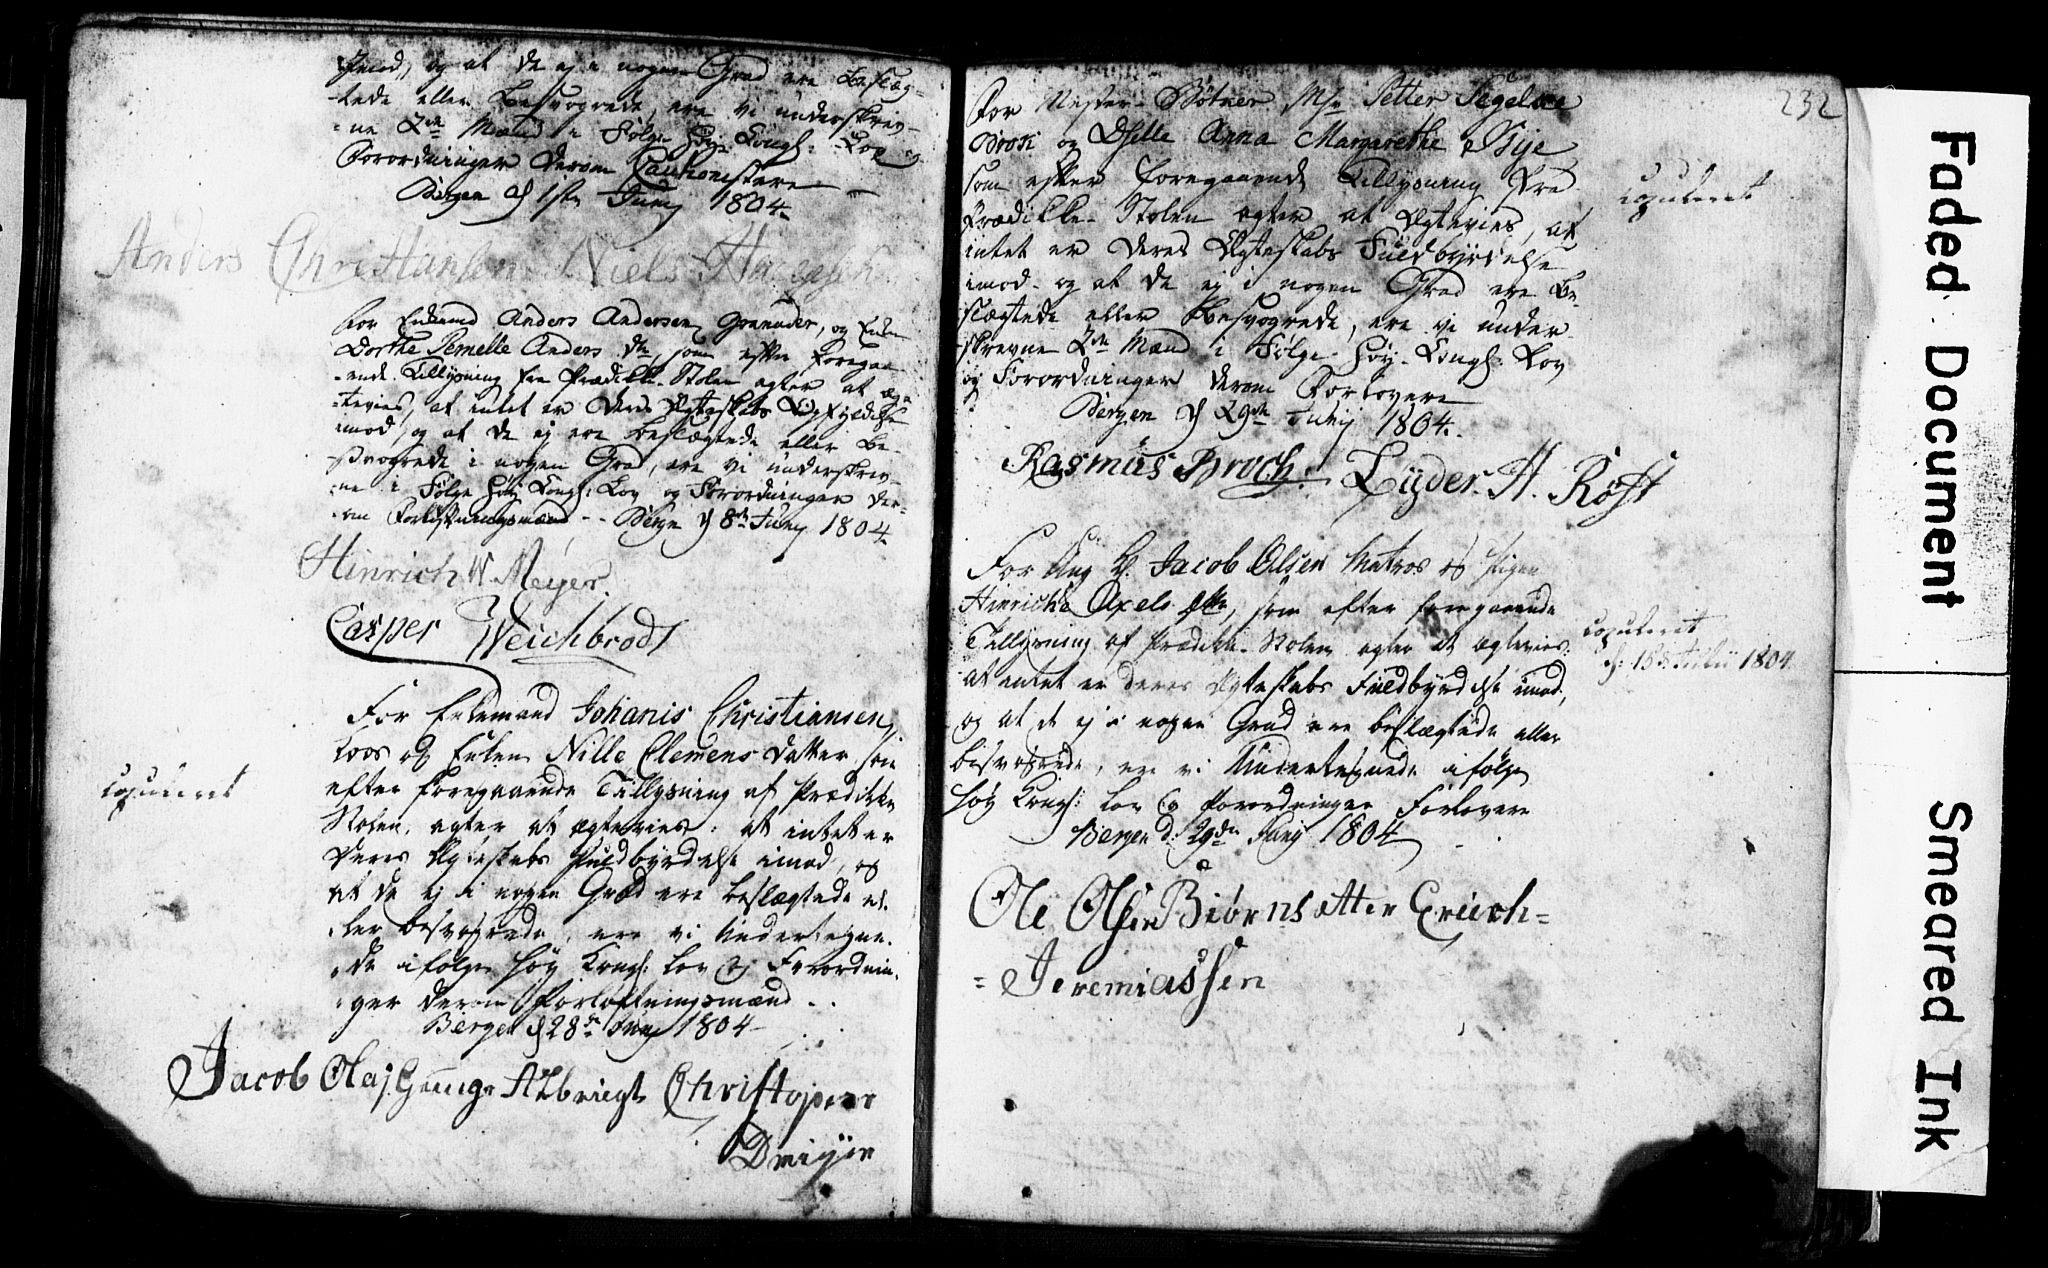 imod, og at de ej i nogen Grad ere beslæg-
-tede eller besvogrede, ere vi underskrev-
-ne 2de Mænd i Følge Høy Kongl: Lov og
Forordninger derom Cautionistere
Bergen d 1ste Junij 1804.
Anders Christiansen Niels
For Enkemd Anders Andersen Granader, og Enken
Dorthe Pernelle Anders dtr, som efter foregaa-
-ende Tillysning fra Prædikke-Stolen agter at æg-
-tevies, at intet er deres Ægteskabs Opfyldelse
imod, og at de ej ere beslægtede eller be-
-svogrede i nogen Grad, ere vi underskrev-
-ne i Følge Høy Kongl: Lov og Forordninger der-
-om Forløftningsmænd - - Bergen d 8de Junij 1804.
Hinrich W. Meyer.
Casper Weichbrodt
For Enkemand Johanis Christiansen
Loos og Enken Nille Clemens datter, som
efter foregaaende Tillysning af Prædikke
Stolen, agter at ægtevies: at intet er
deres Ægteskabs Fuldbyrdelse imod, og
at de ej i nogen Grad ere beslægtede el-
-ler besvogrede, ere vi Undertegne-
-de ifølge Høy Kongl: Lov og Forordnin-
-ger derom Forløftningsmænd - .
Bergen d 28de Junij 1804
copuleret
Jacob Olaj. Albrigt Christopher
Dreijer
232
For Mester-Bødker Mr Petter Segelcke
Brock og Dslle Anna Margarethe Bije
som efter foregaaende Tillysning fra
Prædikke-Stolen agter at Ægtevies, at
intet er deres Ægteskabs Fuldbyrdelse
imod- og at de ej i nogen Grad ere be-
slægtede eller besvogrede, ere vi under-
skrevne 2de Mænd i Følge Høy-Kongl: Lov
og Forordninger derom Forlovere
Bergen d 29de Junij 1804.
copuleret
Rasmus Broch. Lyder. H. Røfft
For Ung K. Jacob Olsen Matros og Pigen
Hinricha Axels dtr, som efter foregaaende
Tillysning af Prædikke-Stolen agter at ægtevies:
at intet er deres Ægteskabs Fuldbyrdelse imod,
og at de ej i nogen Grad ere beslægtede eller
besvogrede, ere vi Undertegnede ifølge
Høy Kongl: Lov og Forordninger Forlovere
Bergen d: 29de Junij 1804
copuleret
d: 18de Julii 1804
Ole Olsen Biørnsætter Erich=
= Jeremiassen
Faded Document
Smeared Ink